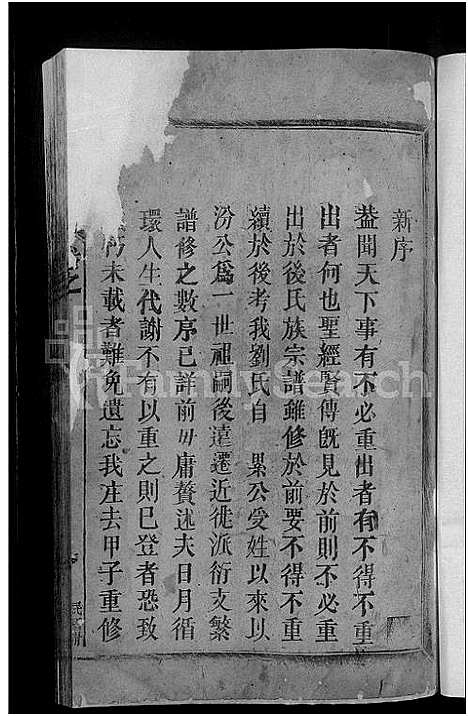 新序
蓋聞天下事有不必重出者有不得不重
出者何也聖經賢傳既見於前則不必重
出於後氏族宗譜雖修於前要不得不重
續於後考我劉氏自 累公受姓以來以
汾公爲一世祖嗣後遠遷近徙派衍支繁
譜修之數序已詳前毋庸贅述夫日月循
環人生代謝不有以重之則已登者恐致
未載者難免遺忘我庄去甲子重修
FamilySearch